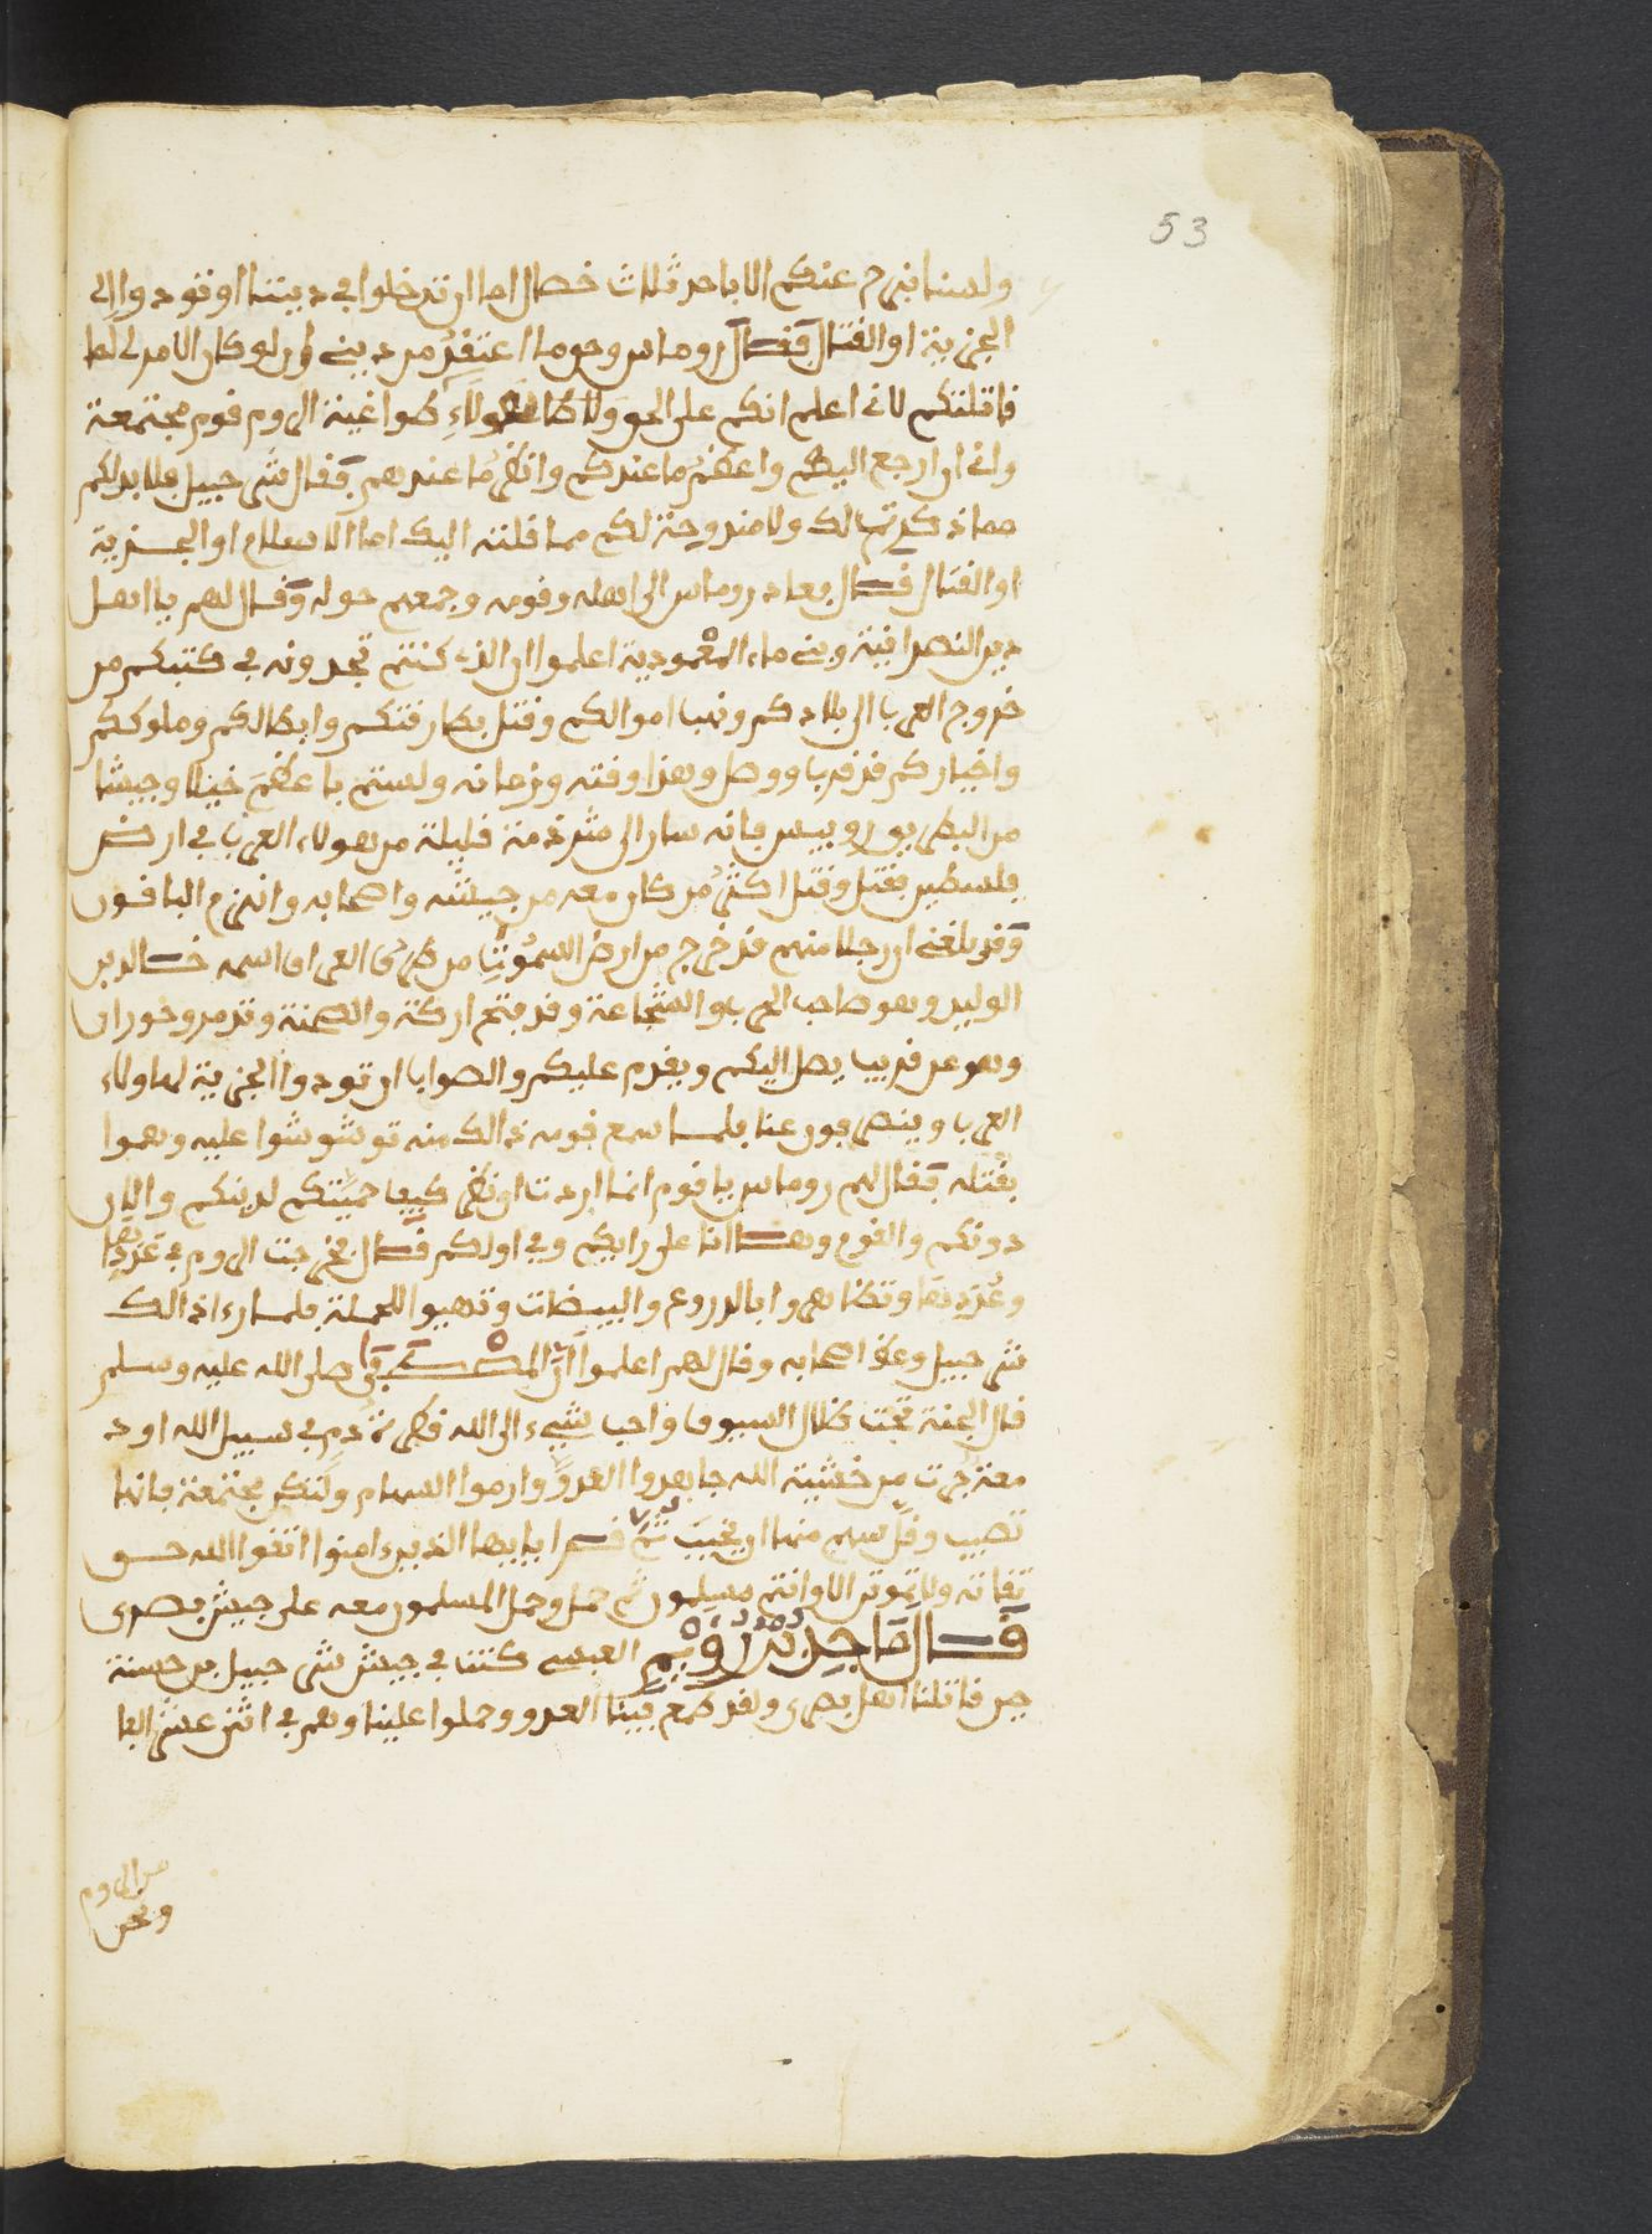 53
ولسنا نبرح عنكم الا باحد ثلاث خصال اما ان تدخلوا في ديننا او تودوا الى
الجزية او القتال فقال روماس وحق ما اعتقد من ديني ان لو كان الامر لي لما
قاتلتكم لاني اعلم انكم على الحق ولاكن هولاء طواغية الروم قوم مجتمعة
واني اريد ارجع اليكم واعظم ما عندكم وانظر ما عندهم فقال شرحبيل فلا بد لكم
مما ذكرته لك ولا مندوحة لكم مما قلته اليك اما الاسلام او الجزية
او القتال قال فعاد روماس الى اهله وقومه وجمعهم حوله وقال لهم يا اهل
دين النصرانية وبني ماء المعمودية اعلموا ان الذي كنتم تجدونه في كتبكم من
خروج العرب الى بلادكم ونهب اموالكم وقتل بطارقتكم وابطالكم وملوككم
واخياركم قد قرب ووصل وهذا وقته وزمانه ولستم باعظم خيلا وجيشا
من البطريق روبيس فانه سار الى شرذمة قليلة من هولاء العرب في ارض
فلسطين فقتل وقتل اكثر من كان معه من جيشه واصحابه وانهزم الباقون
وقد بلغني ان رجلا منهم قد خرج من ارض السموت من طرى العراق اسمه خالد بن
الوليد وهو صاحب الحرب والشجاعة وقد فتح اركة والسخنة وتدمر وحوران
وهو عن قريب يصل اليكم ويقدم عليكم والصواب ان تودوا الجزية لهاولاء
العرب وينصرفون عنا فلما سمع قومه ذالك منه توشوشوا عليه وهموا
بقتله فقال لهم روماس يا قوم انما اردت ان انظر كيف حميتكم لدينكم والان
دونكم والقوم وها انا على رايكم وفي اولكم قال فخرجت الروم في عددها
وعديدها وتظاهروا بالدروع والبيضات وتهيوا للحملة فلما راى ذالك
شرحبيل وعظ اصحابه وقال لهم اعلموا ان المصطفى صلى الله عليه وسلم
قال الجنة تحت ظلال السيوف واحب شيء الى الله قطرة دم في سبيل الله او د
معة جرت من خشية الله جاهدوا العدو وارموا السهام ولتكن مجتمعة فانها
تصيب وقل سهم منها ان يخيب ثم قرا يايها الذين ءامنوا اتقوا الله حق
تقاته ولا تموتن الا وانتم مسلمون ثم حمل وحمل المسلمون معه على جيش بصرى
قال ماجد بن رويم العبسي كنت في جيش شرحبيل بن حسنة
حين قاتلنا اهل بصرى ولقد طمع فينا العدو وحملوا علينا وهم في اثني عشر الفا
من الروم
ونحن